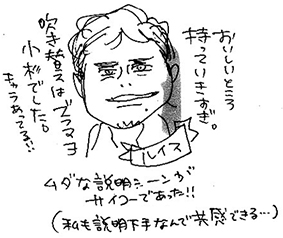 おいしいところ
持っていきすぎ。
吹き替えはブラマヨ
小杉でした。
キャラあってる!!
ルイス
ムダな説明シーンが
サイコーであった!!
(私も説明下手なんで共感できる…)